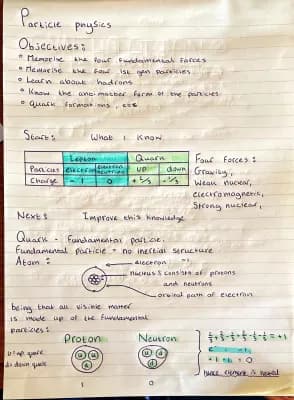 Particle physics
Objectives:
• Memorise the four fundamental forces
• Memorise the four 1st gen particles
• Learn about hadrons
• Know the anti-matter form of the particles
• Quark formations, etc
Start: What I know
Lepton Quark
Particles electron electron neutrino up down
Charge -1 0 +2/3 -1/3
Four forces:
Gravity,
Weak nuclear,
electromagnetic,
Strong nuclear,
Next: Improve this knowledge
Quark - Fundamental particle.
Fundamental particle = no inertial structure
Atom:
electron
nucleus & consists of protons
and neutrons
orbital path of electron
being that all visible matter
is made up of the fundamental
particles:
Proton Neutron
u: up quark
d: down quark
u u
d
d d
u
1 0
= +1
-1 +1 = 0
hence element is neutral